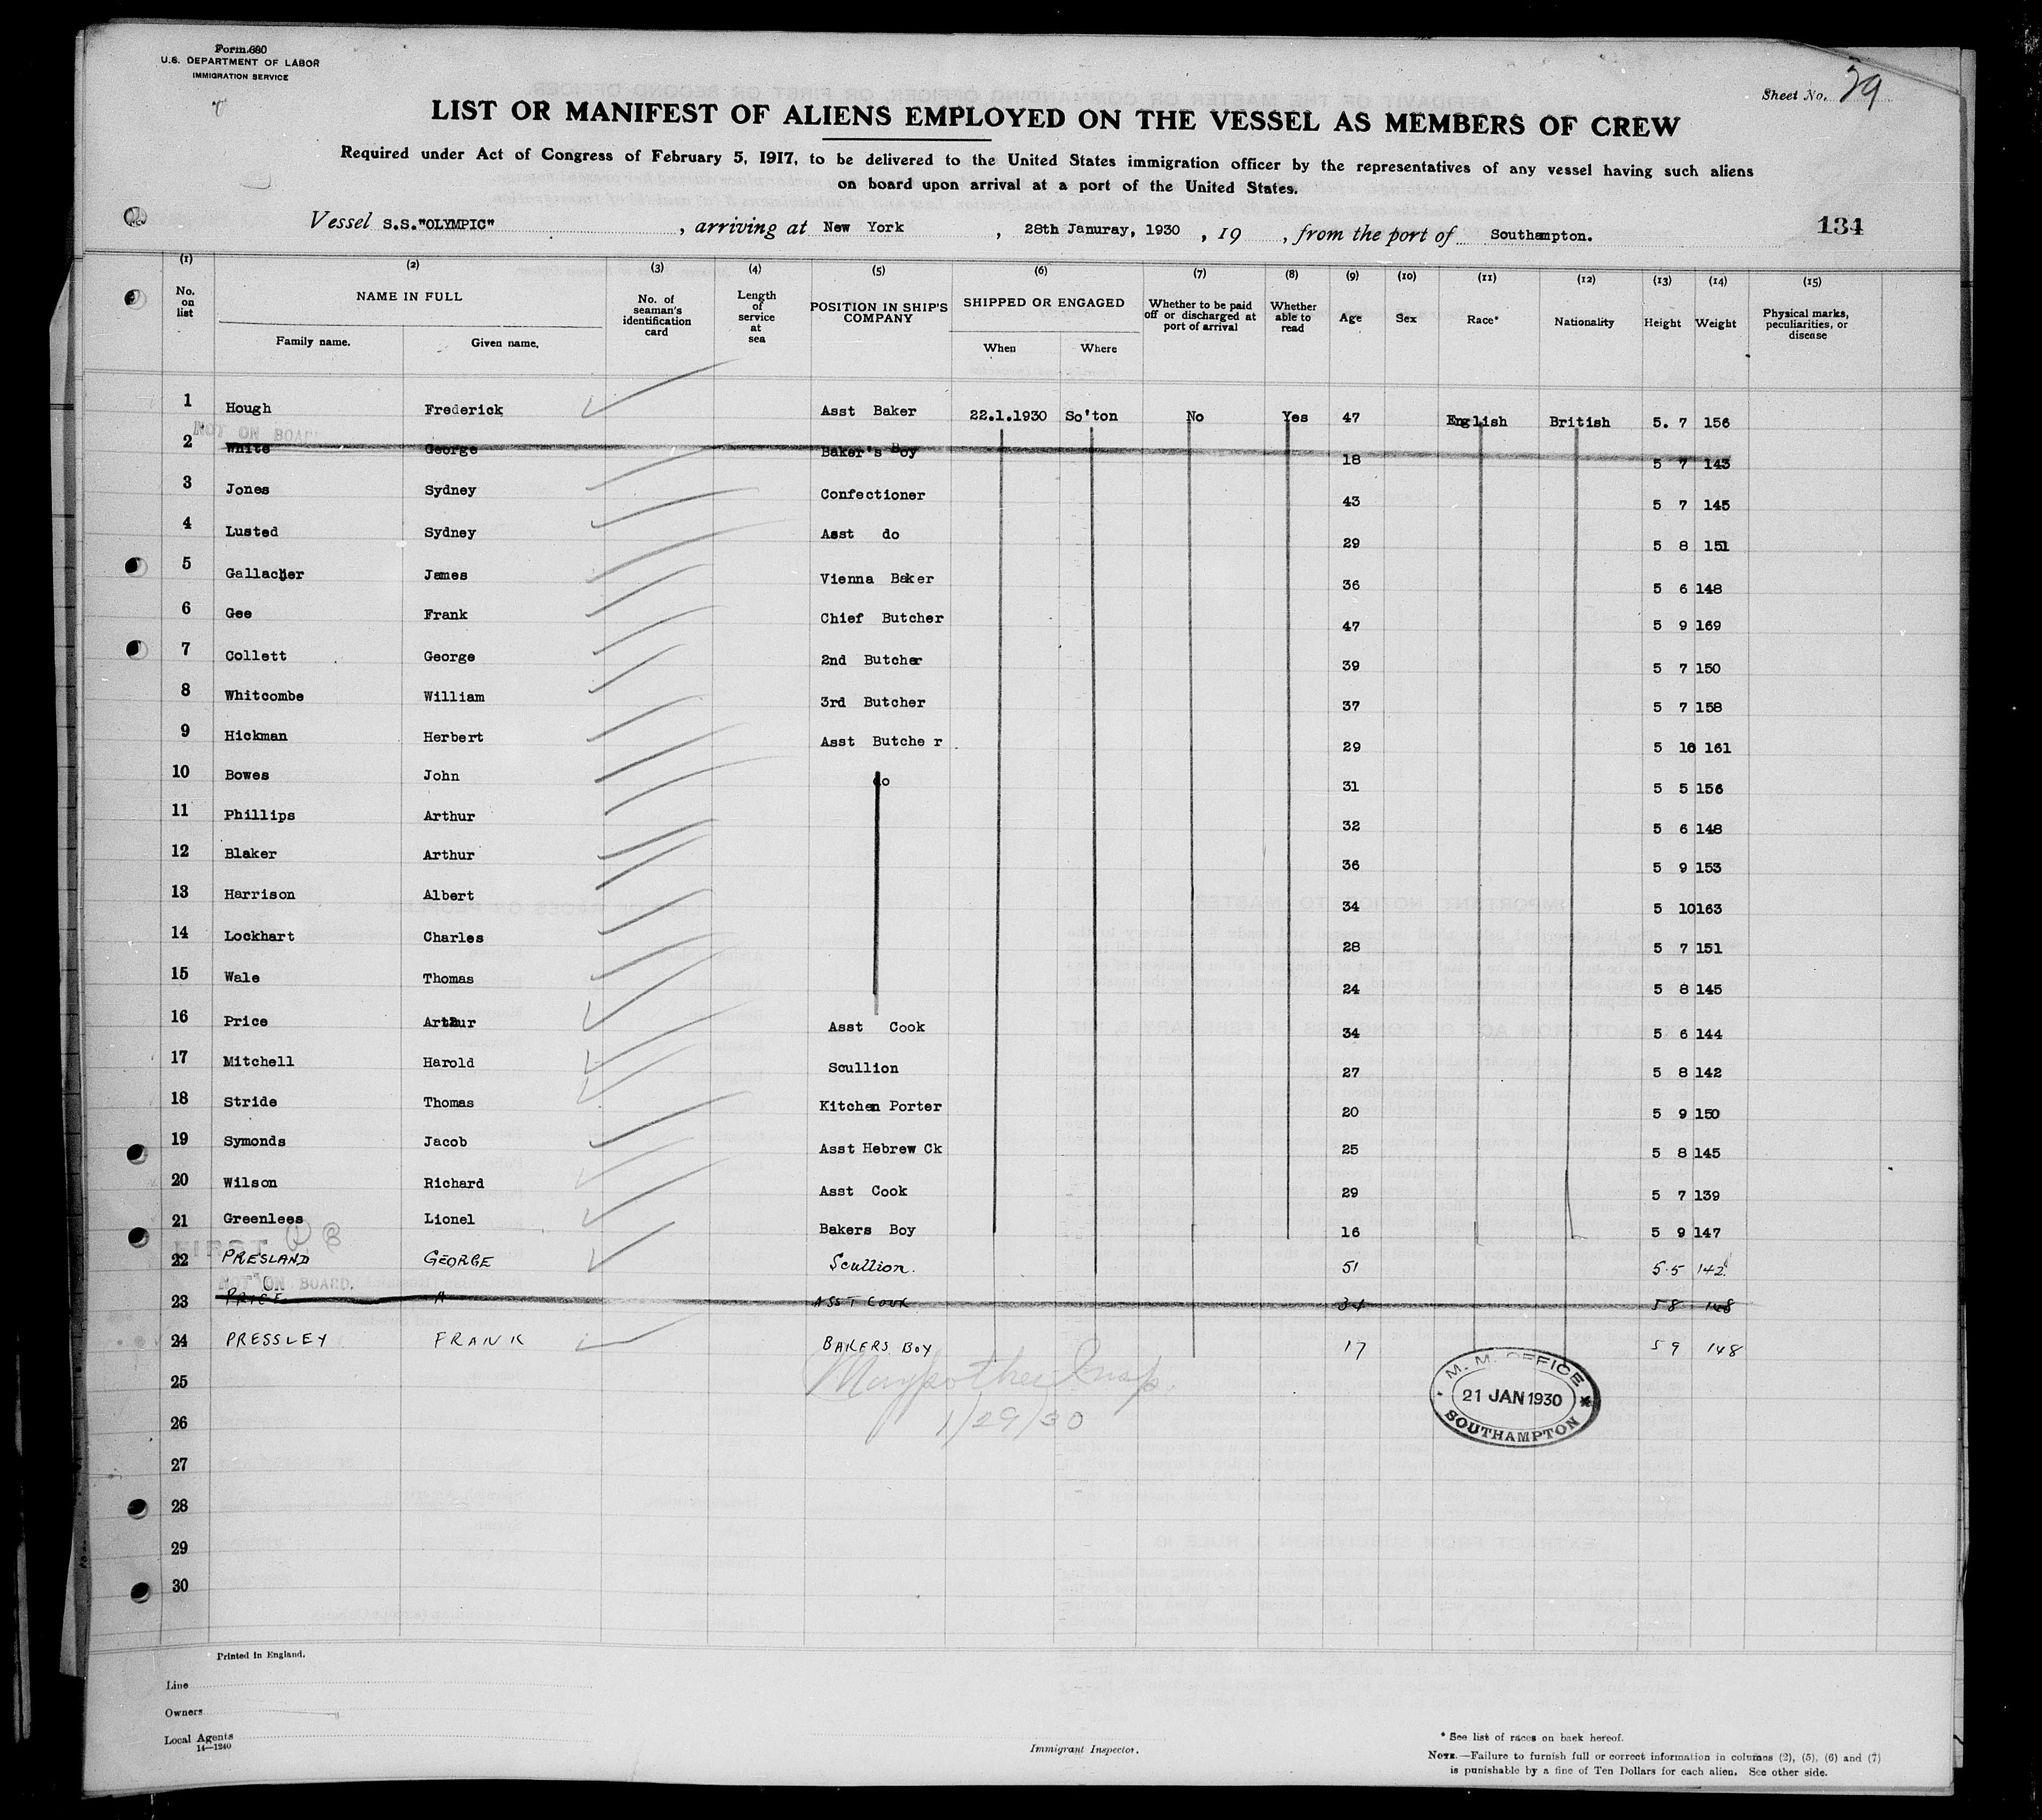 Form 680
U.S. DEPARTMENT OF LABOR
IMMIGRATION SERVICE
Sheet No. 39
LIST OR MANIFEST OF ALIENS EMPLOYED ON THE VESSEL AS MEMBERS OF CREW
Required under Act of Congress of February 5, 1917, to be delivered to the United States immigration officer by the representatives of any vessel having such aliens
on board upon arrival at a port of the United States.
Vessel S.S."OLYMPIC" , arriving at New York , 28th Januray, 1930 , 19 , from the port of Southampton. 134
(1) (2) (3) (4) (5) (6) (7) (8) (9) (10) (11) (12) (13) (14) (15)
No. on list NAME IN FULL Family name. Given name. No. of seaman's identification card Length of service at sea POSITION IN SHIP'S COMPANY SHIPPED OR ENGAGED When Where Whether to be paid off or discharged at port of arrival Whether able to read Age Sex Race* Nationality Height Weight Physical marks, peculiarities, or disease
1 Hough Frederick Asst Baker 22.1.1930 So'ton No Yes 47 English British 5. 7 156
NOT ON BOARD
2 White George Baker's Boy 18 5 7 143
3 Jones Sydney Confectioner 43 5 7 145
4 Lusted Sydney Asst do 29 5 8 151
5 Gallacher James Vienna Baker 36 5 6 148
6 Gee Frank Chief Butcher 47 5 9 169
7 Collett George 2nd Butcher 39 5 7 150
8 Whitcombe William 3rd Butcher 37 5 7 158
9 Hickman Herbert Asst Butche r 29 5 10 161
10 Bowes John do 31 5 5 156
11 Phillips Arthur 32 5 6 148
12 Blaker Arthur 36 5 9 153
13 Harrison Albert 34 5 10 163
14 Lockhart Charles 28 5 7 151
15 Wale Thomas 24 5 8 145
16 Price Arthur Asst Cook 34 5 6 144
17 Mitchell Harold Scullion 27 5 8 142
18 Stride Thomas Kitchen Porter 20 5 9 150
19 Symonds Jacob Asst Hebrew Ck 25 5 8 145
20 Wilson Richard Asst Cook 29 5 7 139
21 Greenlees Lionel Bakers Boy 16 5 9 147
FIRST
22 PRESLAND GEORGE Scullion. 51 5.5 142
NOT ON BOARD.
23 PRICE A ASST COOK 34 5 8 148
24 PRESSLEY FRANK BAKERS BOY 17 5 9 148
25
26
27
28
29
30
1/29/30
M. M. OFFICE
21 JAN 1930
SOUTHAMPTON
Printed in England.
Line
Owners
Local Agents
14—1240
Immigrant Inspector.
* See list of races on back hereof.
NOTE.—Failure to furnish full or correct information in columns (2), (5), (6) and (7)
is punishable by a fine of Ten Dollars for each alien. See other side.